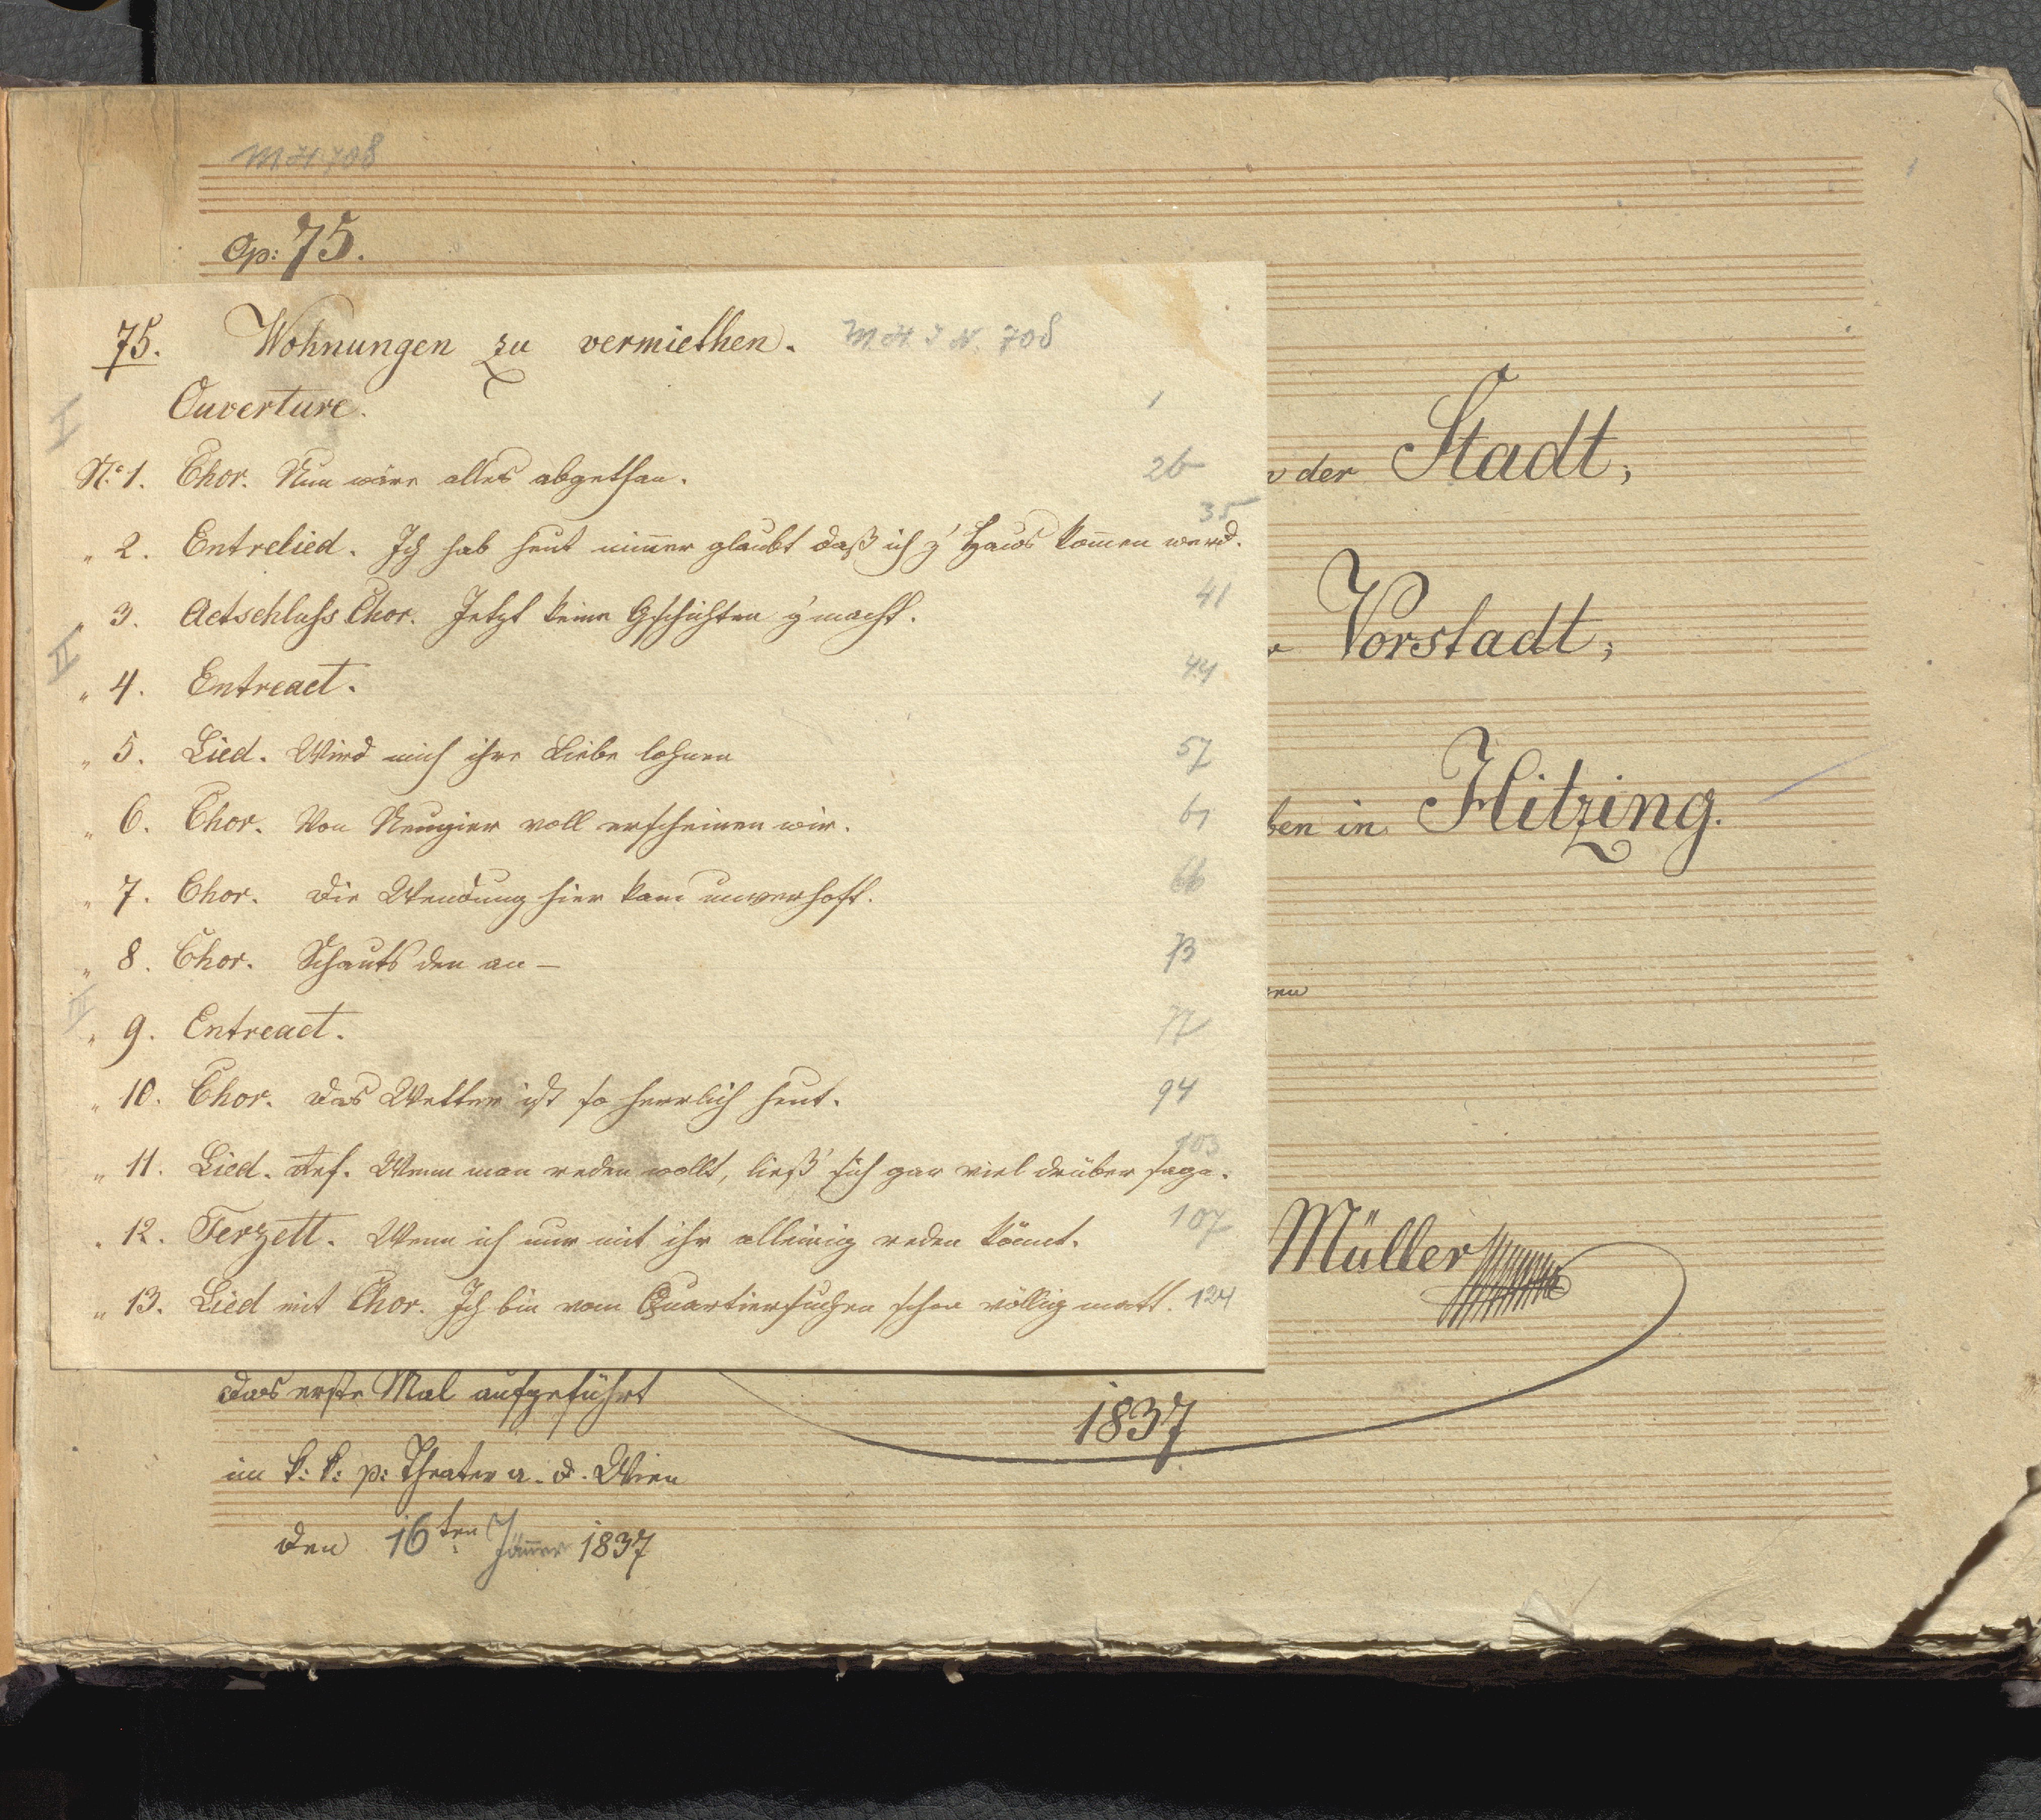 M.H. 708
1
Op: 75.
75. Wohnungen zu vermiethen. M. H. I. N. 708
I Ouverture. 1
Nº 1. Chor. Nun wäre alles abgethan. 26
" 2. Entrelied. Ich hab heut nim̄er glaubt daß ich z' Haus kom̄en werd. 35
" 3. Actschluss Chor. Jetzt keine Gschichten g'macht. 41
II
" 4. Entreact. 44
" 5. Lied. Wird mich ihre Liebe lohnen 57
" 6. Chor. Von Neugier voll erscheinen wir. 61
" 7. Chor. Die Wendung hier kam unverhofft. 66
" 8. Chor. Schauts den an – 73
III
" 9. Entreact. 77
" 10. Chor. Das Wetter ist so herrlich heut. 94
" 11. Lied. Wenn man reden wollt, ließ' sich gar viel drüber sage. 103
" 12. Terzett. Wenn ich nur mit ihr alleinig reden könnt. 107
" 13. Lied mit Chor. Ich bin vom Quartiersuchen schon völlig matt. 124
der Stadt;
Vorstadt;
ben in Hitzing.
Müller
das erste Mal aufgeführt
1837
im k: k: p: Theater a. d. Wien
den 16ten Jän̄er 1837